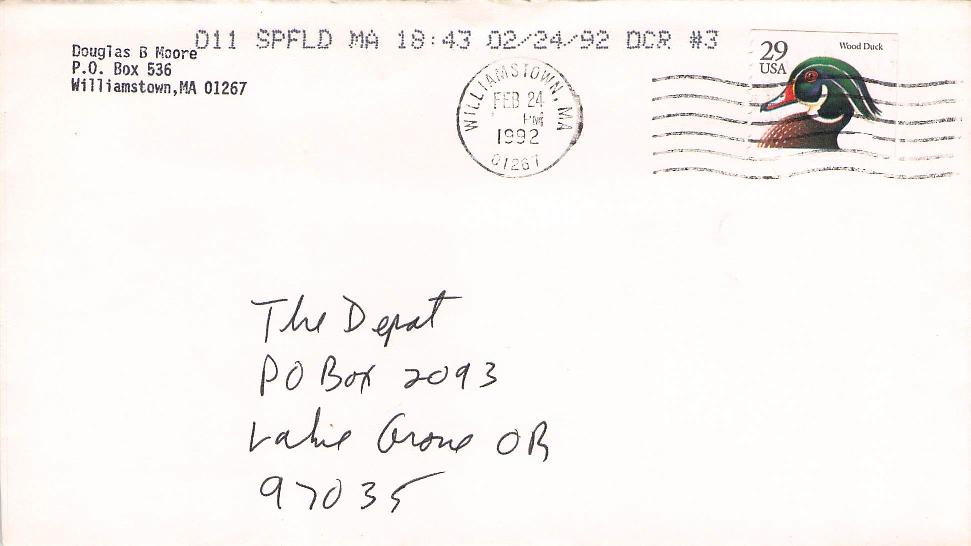 D11 SPFLD MA 18:43 02/24/92 OCR #3
Douglas B Moore
P.O. Box 536
Williamstown,MA 01267
WILLIAMSTOWN, MA
FEB 24
PM
1992
01267
29
USA
Wood Duck
The Depot
PO Box 2093
Lake Grove OR
97035